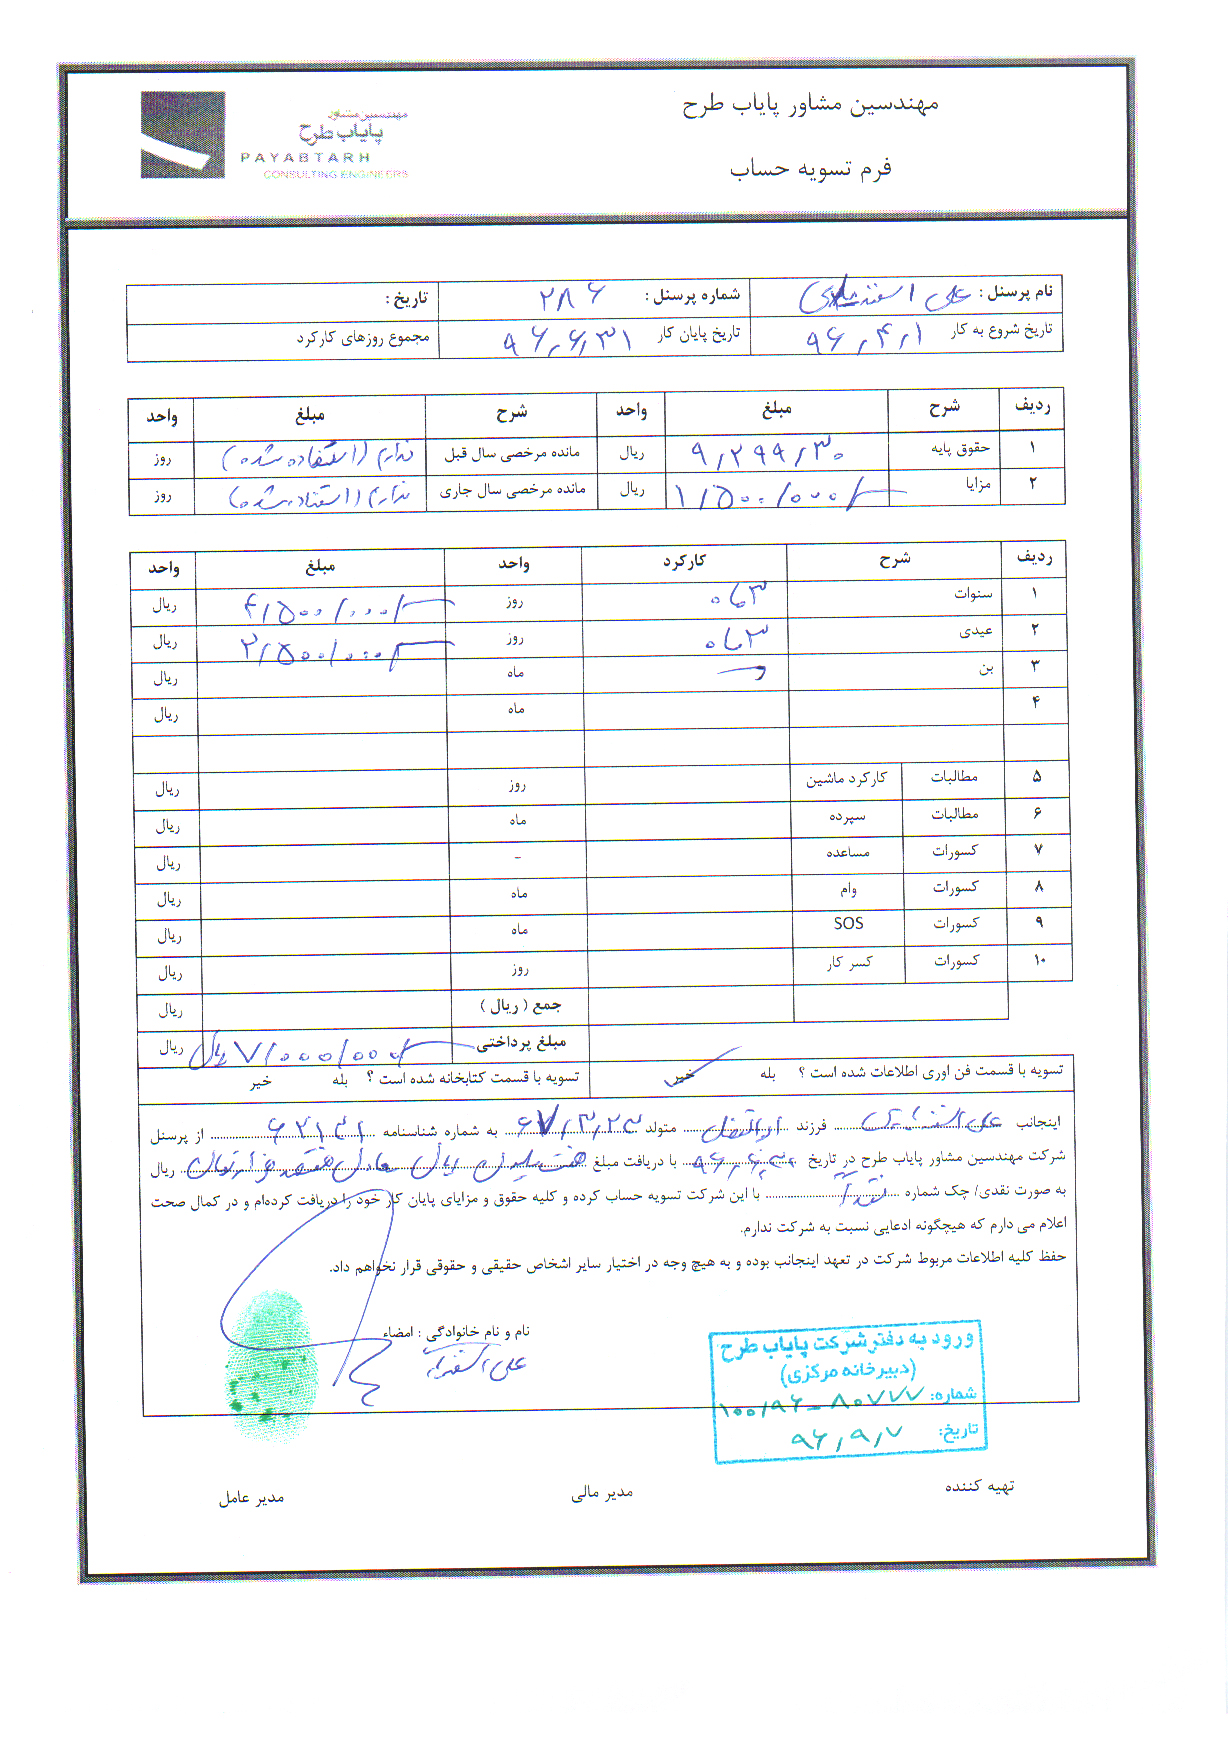 مهندسین مشاور پایاب طرح
فرم تسویه حساب
مهندسین مشاور
پایاب طرح
PAYABTARH
CONSULTING ENGINEERS
نام پرسنل : علی شماره پرسنل : ۲۸۶ تاریخ :
تاریخ شروع به کار ۹۶,۴,۱ تاریخ پایان کار ۹۶,۶,۳۱ مجموع روزهای کارکرد
ردیف شرح مبلغ واحد شرح مبلغ واحد
۱ حقوق پایه ۹,۲۹۹,۳۰ ریال مانده مرخصی سال قبل ندارم (استفاده شده) روز
۲ مزایا ۱,۵۰۰,۰۰۰ ریال مانده مرخصی سال جاری ندارم (استفاده شده) روز
ردیف شرح کارکرد واحد مبلغ واحد
۱ سنوات روز ۴,۵۰۰,۰۰۰ ریال
۲ عیدی روز ۲,۵۰۰,۰۰۰ ریال
۳ بن ماه ریال
۴ ماه ریال
۵ مطالبات کارکرد ماشین روز ریال
۶ مطالبات سپرده ماه ریال
۷ کسورات مساعده - ریال
۸ کسورات وام ماه ریال
۹ کسورات SOS ماه ریال
۱۰ کسورات کسر کار روز ریال
جمع ( ریال ) ریال
مبلغ پرداختی ۷,۰۰۰,۰۰۰ ریال ریال
تسویه با قسمت فن اوری اطلاعات شده است ؟ بله خیر تسویه با قسمت کتابخانه شده است ؟ بله خیر
اینجانب علی فرزند ابوالفضل متولد ۶۷,۳,۲۳ به شماره شناسنامه ۶۲۱۳۱ از پرسنل
شرکت مهندسین مشاور پایاب طرح در تاریخ ۹۶,۶,۳۰ با دریافت مبلغ هفت میلیون ریال معادل هفتصد هزار تومان ریال
به صورت نقدی/ چک شماره نقدا با این شرکت تسویه حساب کرده و کلیه حقوق و مزایای پایان کار خود را دریافت کرده‌ام و در کمال صحت
اعلام می دارم که هیچگونه ادعایی نسبت به شرکت ندارم.
حفظ کلیه اطلاعات مربوط شرکت در تعهد اینجانب بوده و به هیچ وجه در اختیار سایر اشخاص حقیقی و حقوقی قرار نخواهم داد.
نام و نام خانوادگی : امضاء
علی
ورود به دفتر شرکت پایاب طرح
(دبیرخانه مرکزی)
شماره: ۱۰۰/۹۶-۸۰۷۷۷
تاریخ: ۹۶,۹,۷
تهیه کننده مدیر مالی مدیر عامل